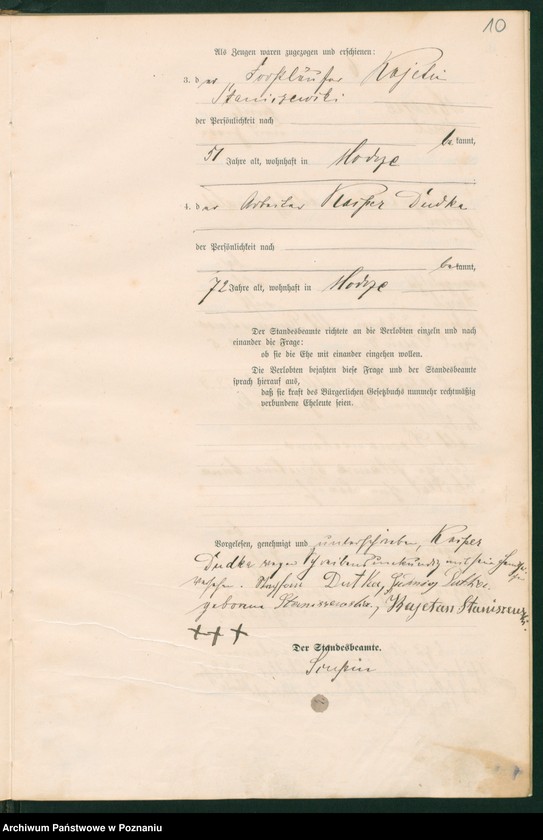 10
Als Zeugen waren zugezogen und erschienen:
3. der Forstläufer Kajetan
Staniszewski
der Persönlichkeit nach
bekannt,
51 Jahre alt, wohnhaft in Modrze
4. der Arbeiter Kasper Dudka
der Persönlichkeit nach
bekannt,
72 Jahre alt, wohnhaft in Modrze
Der Standesbeamte richtete an die Verlobten einzeln und nach
einander die Frage:
ob sie die Ehe mit einander eingehen wollen.
Die Verlobten bejahten diese Frage und der Standesbeamte
sprach hierauf aus,
daß sie kraft des Bürgerlichen Gesetzbuchs nunmehr rechtmäßig
verbundene Eheleute seien.
Vorgelesen, genehmigt und unterschrieben, Kasper
Dudka wegen Schreibensunkunde mit seinem Handzeichen
versehen. Dutka,
geborene Staniszewska, Kajetan Staniszewski.
+++
Der Standesbeamte.
Archiwum Państwowe w Poznaniu